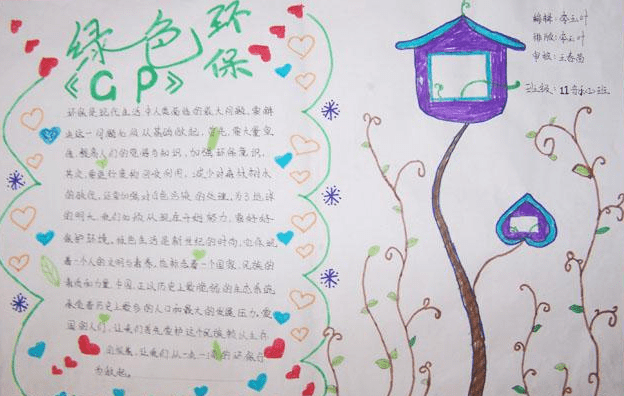 绿色环保
《GP》
编辑：李玉叶
排版：李玉叶
审核：王春苗
班级：11音体（2）班
环保是现代生活中人类面临的最大问题，要解
决这一问题必须从基础做起，首先，要大量宣
传，提高人们的觉悟与知识，加强环保意识，
其次，要进行废物回收利用，减少对森林树木
的砍伐，还要加强对白色污染的处理，为了地球
的明天，我们必须从现在开始努力，要好好
保护环境。绿色生活是新世纪的时尚，它体现
着一个人的文明与素养，也标志着一个国家、民族的
素质和力量，中国，正以历史上最脆弱的生态系统，
承受着历史上最多的人口和最大的发展压力，爱
国的人们，让我们首先爱护这个民族赖以生存
的环境，让我们从一点一滴的环保行
为做起。